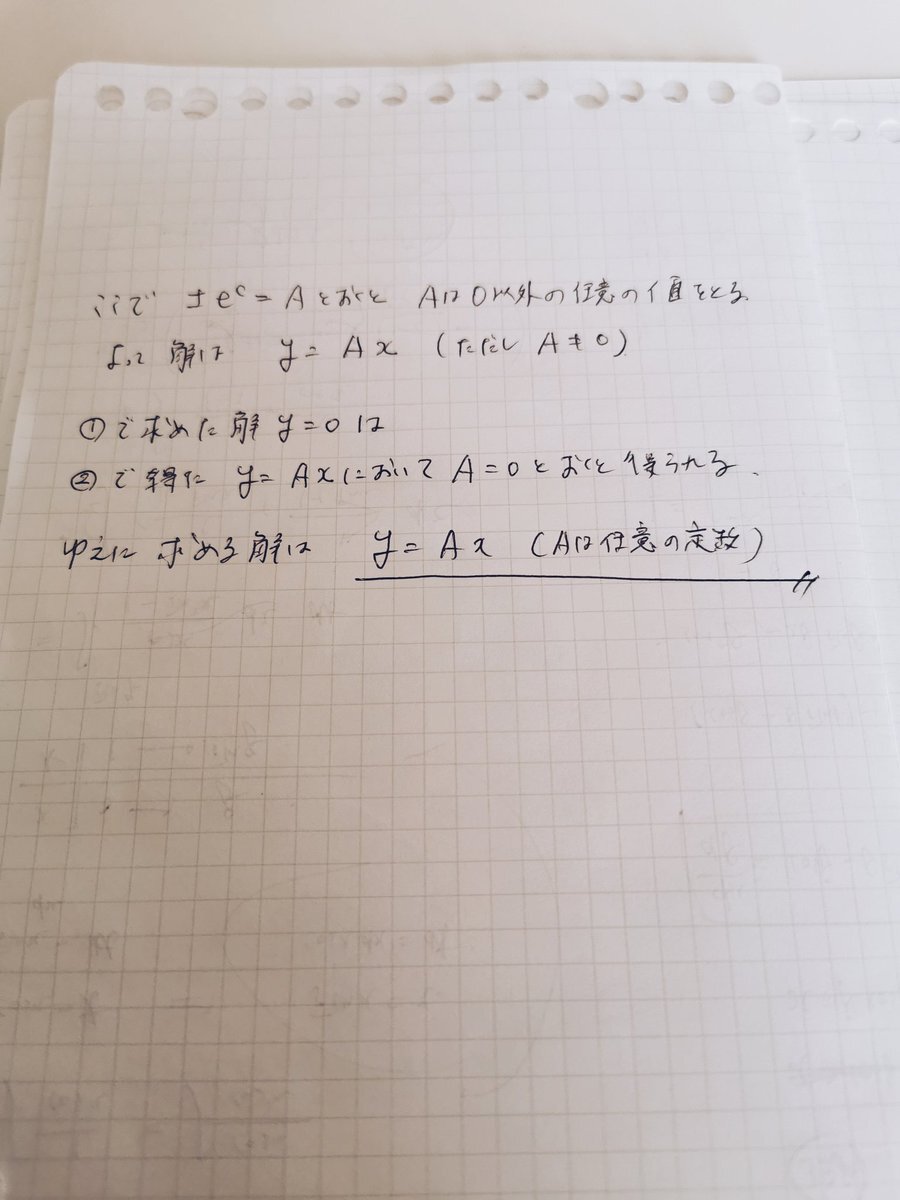 ここで ±e^c = A とおくと Aは0以外の任意の値をとる
よって 解は y = Ax (ただし A≠0)
① で求めた解 y=0 は
② で得た y=Axにおいて A=0とおくと得られる.
ゆえに 求める解は y = Ax (Aは任意の定数)